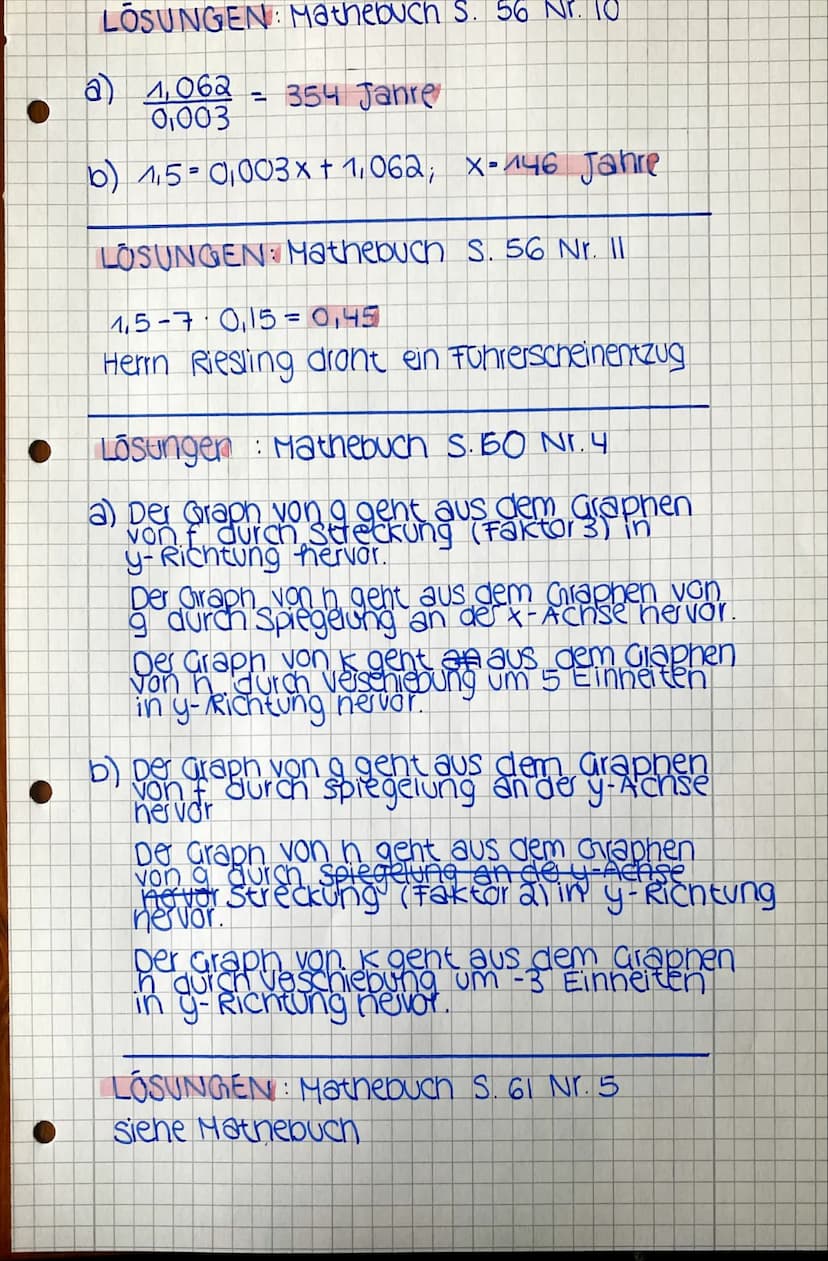 LÖSUNGEN: Mathebuch S. 56 Nr. 10
a) 1,062
0,003 = 354 Jahre
b) 1,5 = 0,003x + 1,062; x = 146 Jahre
LÖSUNGEN: Mathebuch S. 56 Nr. 11
1,5 - 7 · 0,15 = 0,45
Herrn Riesling droht ein Führerscheinentzug
Lösungen : Mathebuch S. 60 Nr. 4
a) Der Graph von g geht aus dem Graphen
von f durch Streckung (Faktor 3) in
y-Richtung hervor.
Der Graph von h geht aus dem Graphen von
g durch Spiegelung an der x-Achse hervor.
Der Graph von k geht an aus dem Graphen
von h durch Verschiebung um 5 Einheiten
in y-Richtung hervor.
b) Der Graph von g geht aus dem Graphen
von f durch Spiegelung an der y-Achse
hervor
Der Graph von h geht aus dem Graphen
von g durch Spiegelung an de y-Achse
hervor Streckung (Faktor 2) in y-Richtung
hervor.
Der Graph von k geht aus dem Graphen
h durch Veschiebung um -3 Einheiten
in y-Richtung hevor.
LÖSUNGEN: Mathebuch S. 61 Nr. 5
siehe Mathebuch